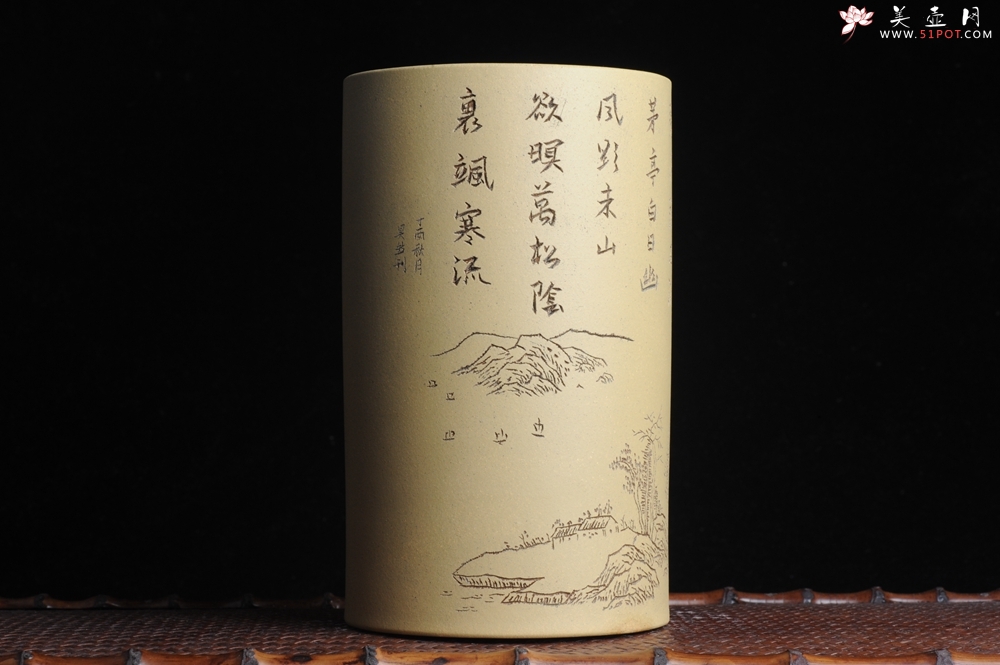 美壶网
WWW.51POT.COM
茅亭白日幽
风影来山
欲暝萬松陰
裏颯寒流
丁酉秋月
吴刊